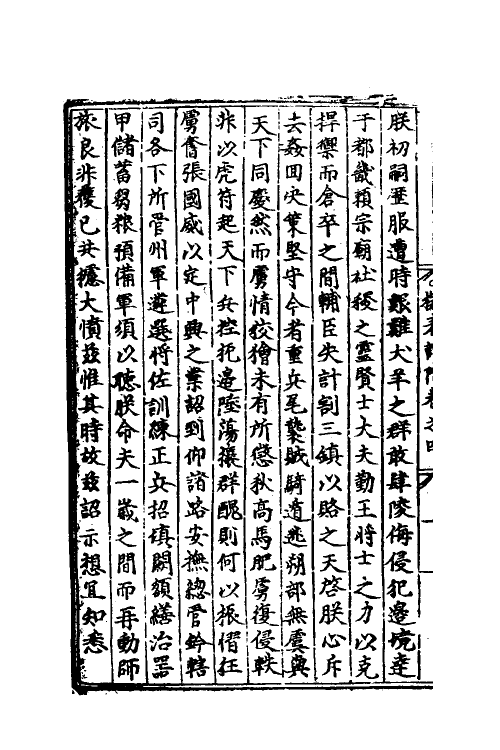 朕初嗣歷服遭時艱難犬羊之群敢肆陵侮侵犯邊境達
于都畿賴宗廟社稷之靈賢士大夫勤王將士之力以克
捍禦而倉卒之間輔臣失計割三鎮以賂之天啓朕心斥
去姦回决策堅守今者重兵尾襲賊騎遁逃朔部無虞與
天下同慶然而虜情狡獪未有所懲秋高馬肥虜復侵軼
非以虎符起天下兵控扼邊陲蕩攘群醜則何以振慴狂
虜奮張國威以定中興之業詔到仰諸路安撫總管鈐轄
司各下所管州軍遴選將佐訓練正兵招填闕額繕治器
甲儲蓄芻粮預備軍須以聽朕命夫一歲之間而再動師
旅良非獲已共攄大憤茲惟其時故茲詔示想宜知悉